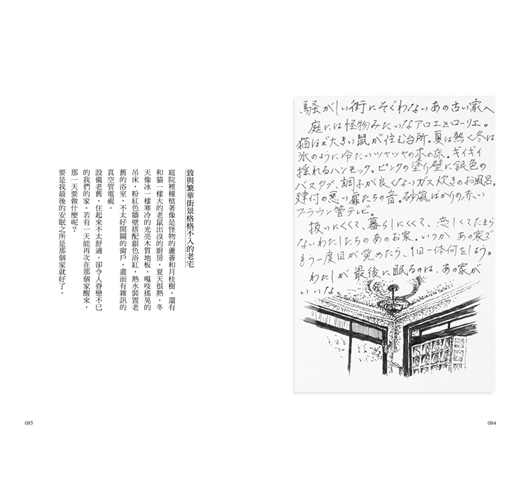 騒がしい街にそぐわないあの古い家へ
庭には怪物みたいなアロエとローリエ。
猫ほど大きい鼠が住む台所。夏は熱く冬は
氷のように冷たいツヤツヤの木の床。ギイギイ
揺れるハンモック。ピンクの塗り壁に銀色の
バスタブ、調子が良くないガス炊きのお風呂。
建付の悪い扉たちの音。砂嵐ばかりの赤い
ブラウン管テレビ。
扱いにくくて、暮らしにくくて、恋しくてたまら
ないわたしたちのあのお家。いつか あの家で
もう一度目が覚めたら、1日一体何をしよう。
わたしが最後に眠るのは、あの家が
いいな。
084
致與繁華街景格格不入的老宅
庭院裡種植著像是怪物的蘆薈和月桂樹,還有
和貓一樣大的老鼠出沒的廚房,夏天很熱,冬
天像冰一樣寒冷的光亮木質地板,嘎吱搖晃的
吊床,粉紅色牆壁搭配銀色浴缸,熱水裝置老
舊的浴室,不太好開關的窗戶,畫面有雜訊的
真空管電視。
設備老舊,住起來不太舒適,卻令人眷戀不已
的我們的家,若有一天能再次在那個家醒來,
那一天要做什麼呢?
要是我最後的安眠之所是那個家就好了。
085